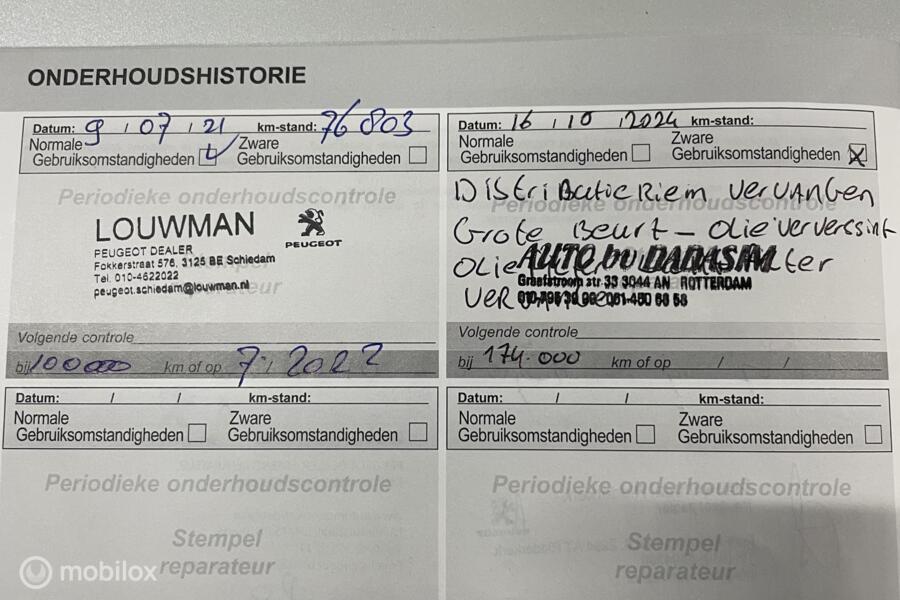 ONDERHOUDSHISTORIE
Datum: 9 / 07 / 21 km-stand: 76 803
Normale Zware
Gebruiksomstandigheden Gebruiksomstandigheden
Periodieke onderhoudscontrole
LOUWMAN
PEUGEOT
PEUGEOT DEALER
Fokkerstraat 576, 3125 BE Schiedam
Tel. 010-4622022
peugeot.schiedam@louwman.nl
reparateur
Volgende controle
bij 100000 km of op 7 / 2022
Datum: 16 / 10 / 2024 km-stand:
Normale Zware
Gebruiksomstandigheden Gebruiksomstandigheden
Periodieke onderhoudscontrole
Distributie Riem vervangen
Grote Beurt - olie ververssint
olie
AUTO bv DADASIM
33 3044 AN ROTTERDAM
Volgende controle
bij 174.000 km of op / /
Datum: / / km-stand:
Normale Zware
Gebruiksomstandigheden Gebruiksomstandigheden
Periodieke onderhoudscontrole
Stempel
reparateur
Datum: / / km-stand:
Normale Zware
Gebruiksomstandigheden Gebruiksomstandigheden
Periodieke onderhoudscontrole
Stempel
reparateur
mobilox